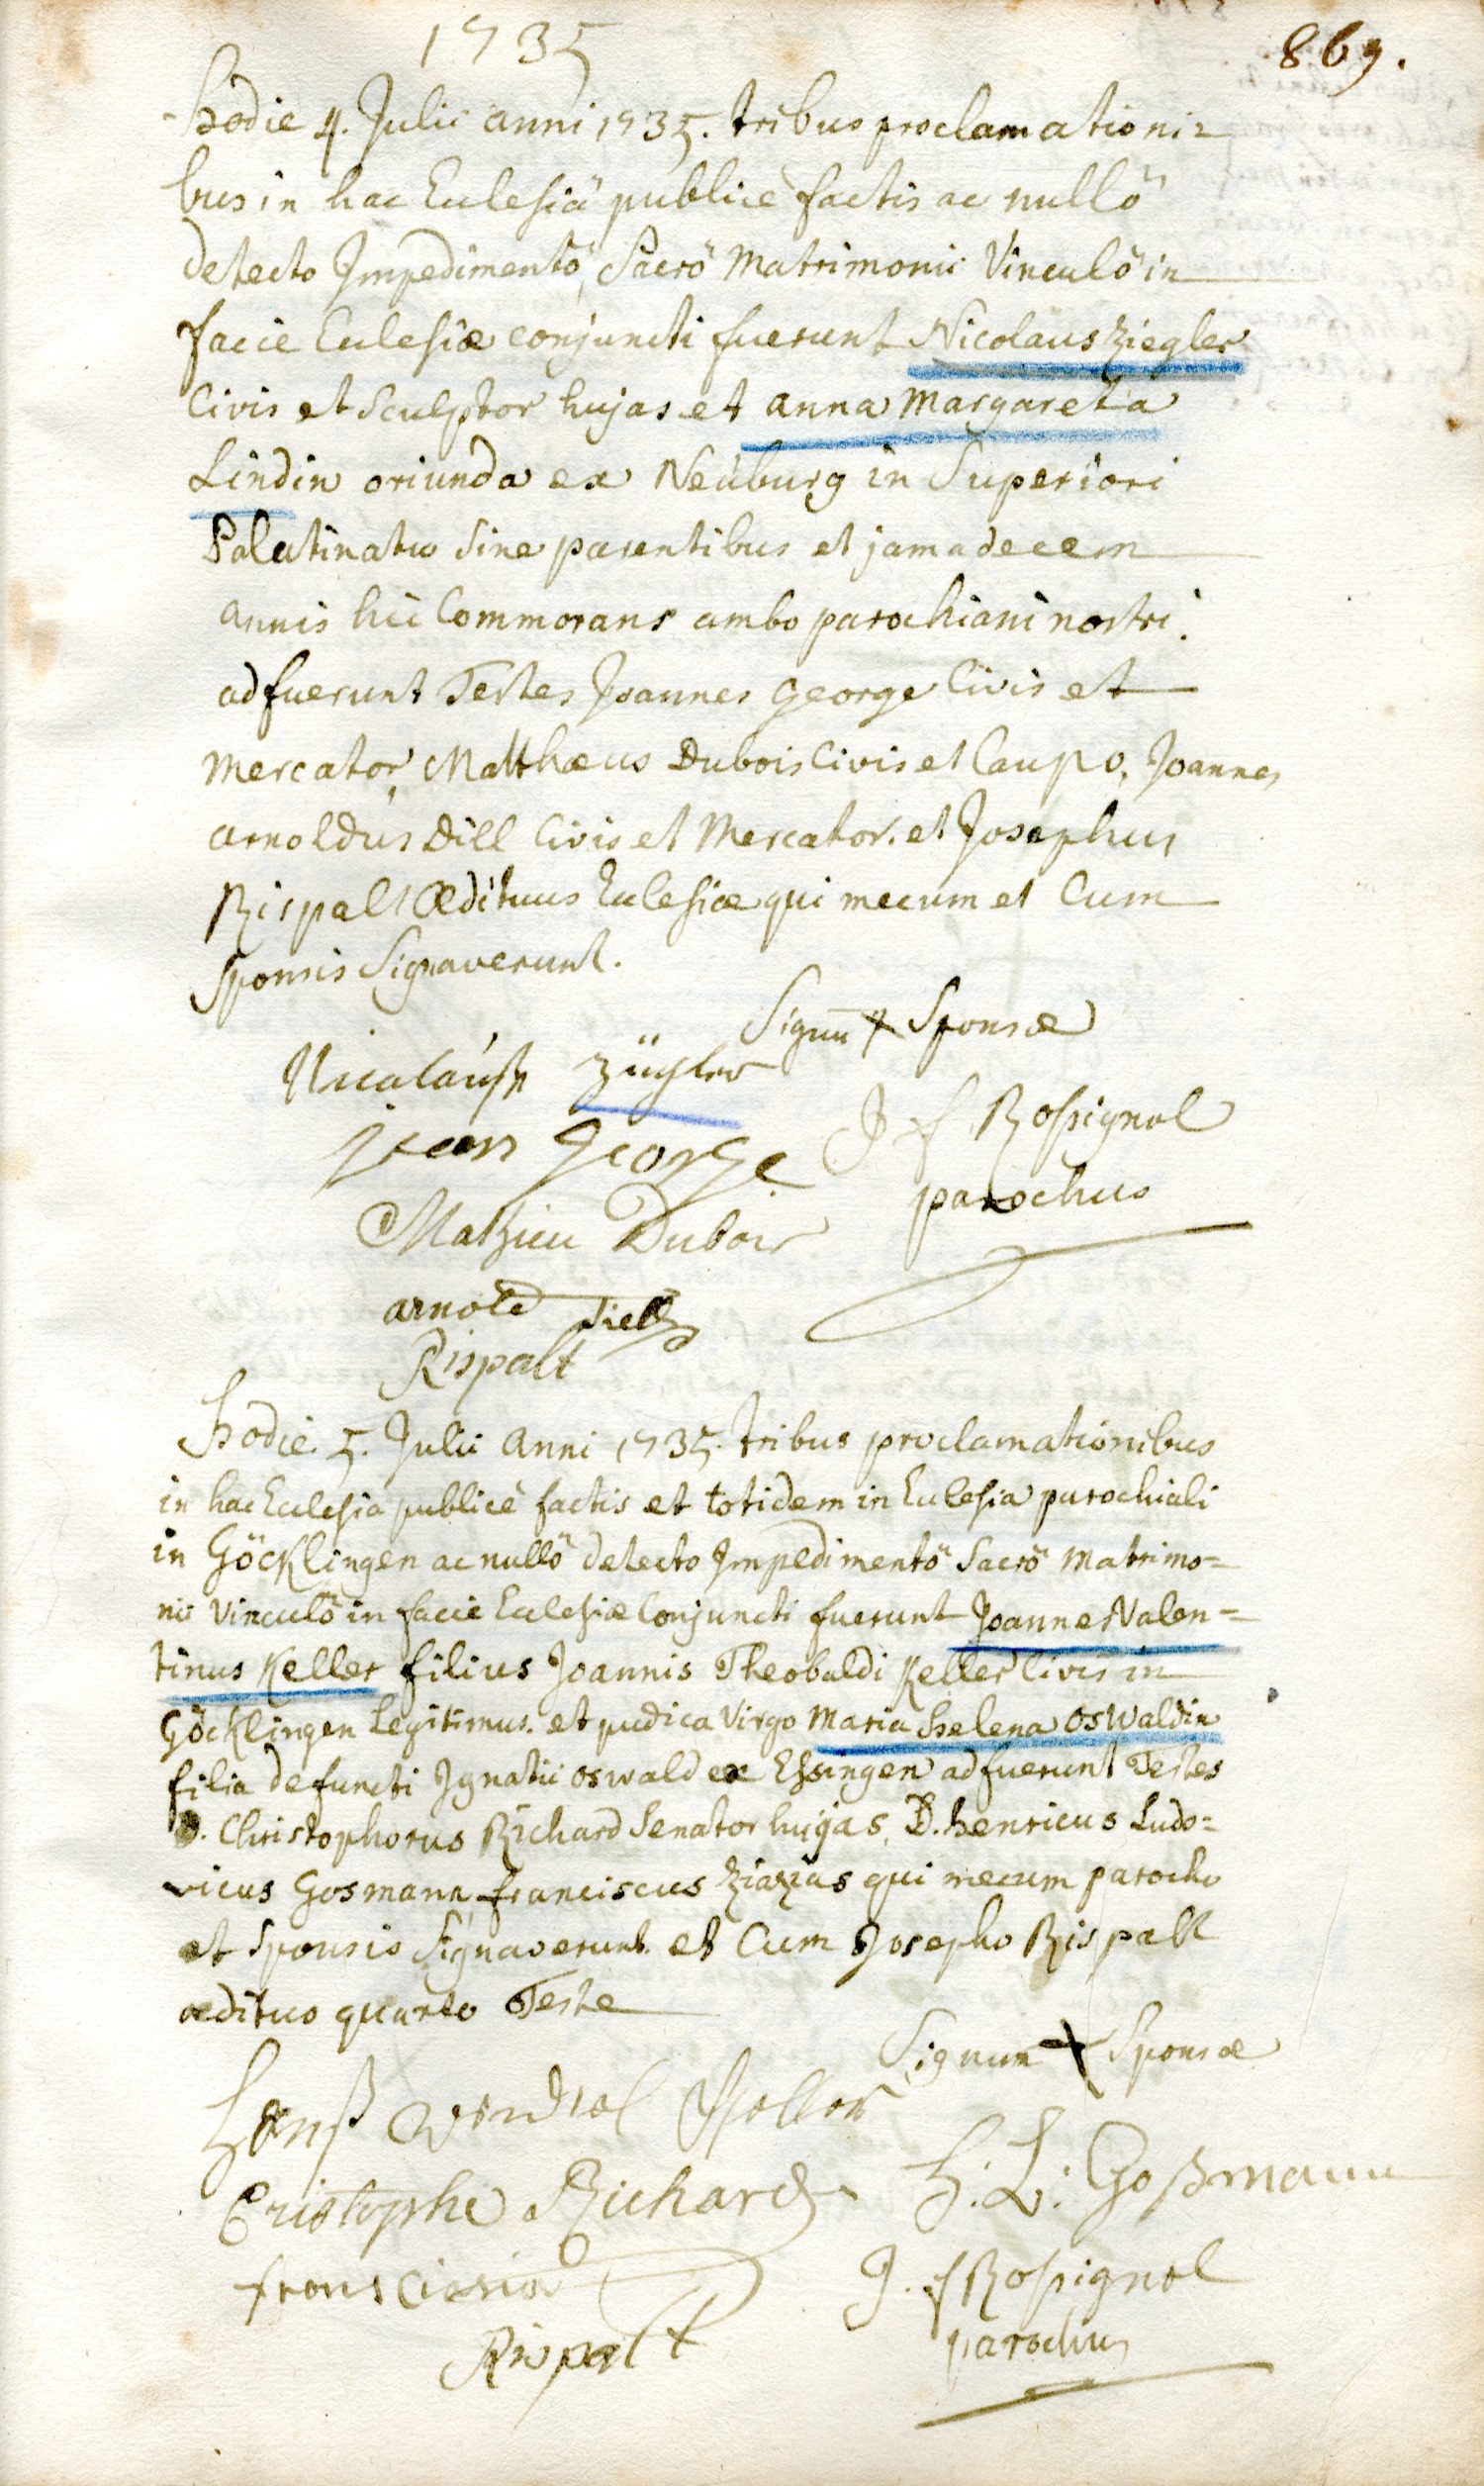 1735
869.
Hodie 4. Julii anni 1735. tribus proclamationi=
bus in hac Ecclesiâ publicè factis ac nullô
detecto Impedimentô, Sacrô Matrimonii Vinculô in
facie Ecclesiæ conjuncti fuerunt Nicolaus Ziegler
Civis et Sculptor hujas et anna Margareta
Lindin oriunda ex Neuburg in Superiori
Palatinatu sine parentibus et jam a decem
annis hic Commorans ambo parochiani nostri.
adfuerunt Testes Joannes George Civis et
Mercator, Matthæus Dubois Civis et Caupo, Joannes
arnoldus Dill Civis et Mercator. et Josephus
Rispalt Ædituus Ecclesiæ qui mecum et Cum
sponsis Signaverunt.
Signu̅ + Sponsæ
Nicalauß Zügler
J f Roßignol
jean George
parochus
Mathieu Dubois
arnold Diell
Rispalt
Hodie 5. Julii Anni 1735. tribus proclamationibus
in hac Ecclesiâ publicè factis et totidem in Ecclesia parochiali
in Göcklingen ac nullô detecto Impedimentô Sacrô Matrimo=
nii Vinculô in facie Ecclesiæ Conjuncti fuerunt Joannes Valen=
tinus Keller filius Joannis Theobaldi Keller Civis in
Göcklingen Legitimus. et pudica Virgo Maria Helena Oswaldin
filia defuncti Ignatii Oswald ex Essingen adfuerunt Testes
D. Christophorus Richard Senator hujas, D. Henricus Ludo=
vicus Gosmann, franciscus Ziazias qui mecum parocho
et Sponsis Signaverunt. et Cum Josepho Rispalt
ædituo quarto Teste
Signum + Sponsæ
Hanß Keller
Cristophe Richard
H. L. Goßmann
J. f Roßignol
Rispalt
parochus